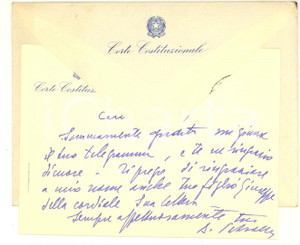 Corte Costituzionale
Corte Costituz
Caro
Sommamente gradito mi giunse
il tuo telegramma, e te ne ringrazio
di cuore. Ti prego di ringraziare
a mio nome anche tuo figlio Giuseppe
della cordiale Sua lettera
Sempre affettuosamente tuo